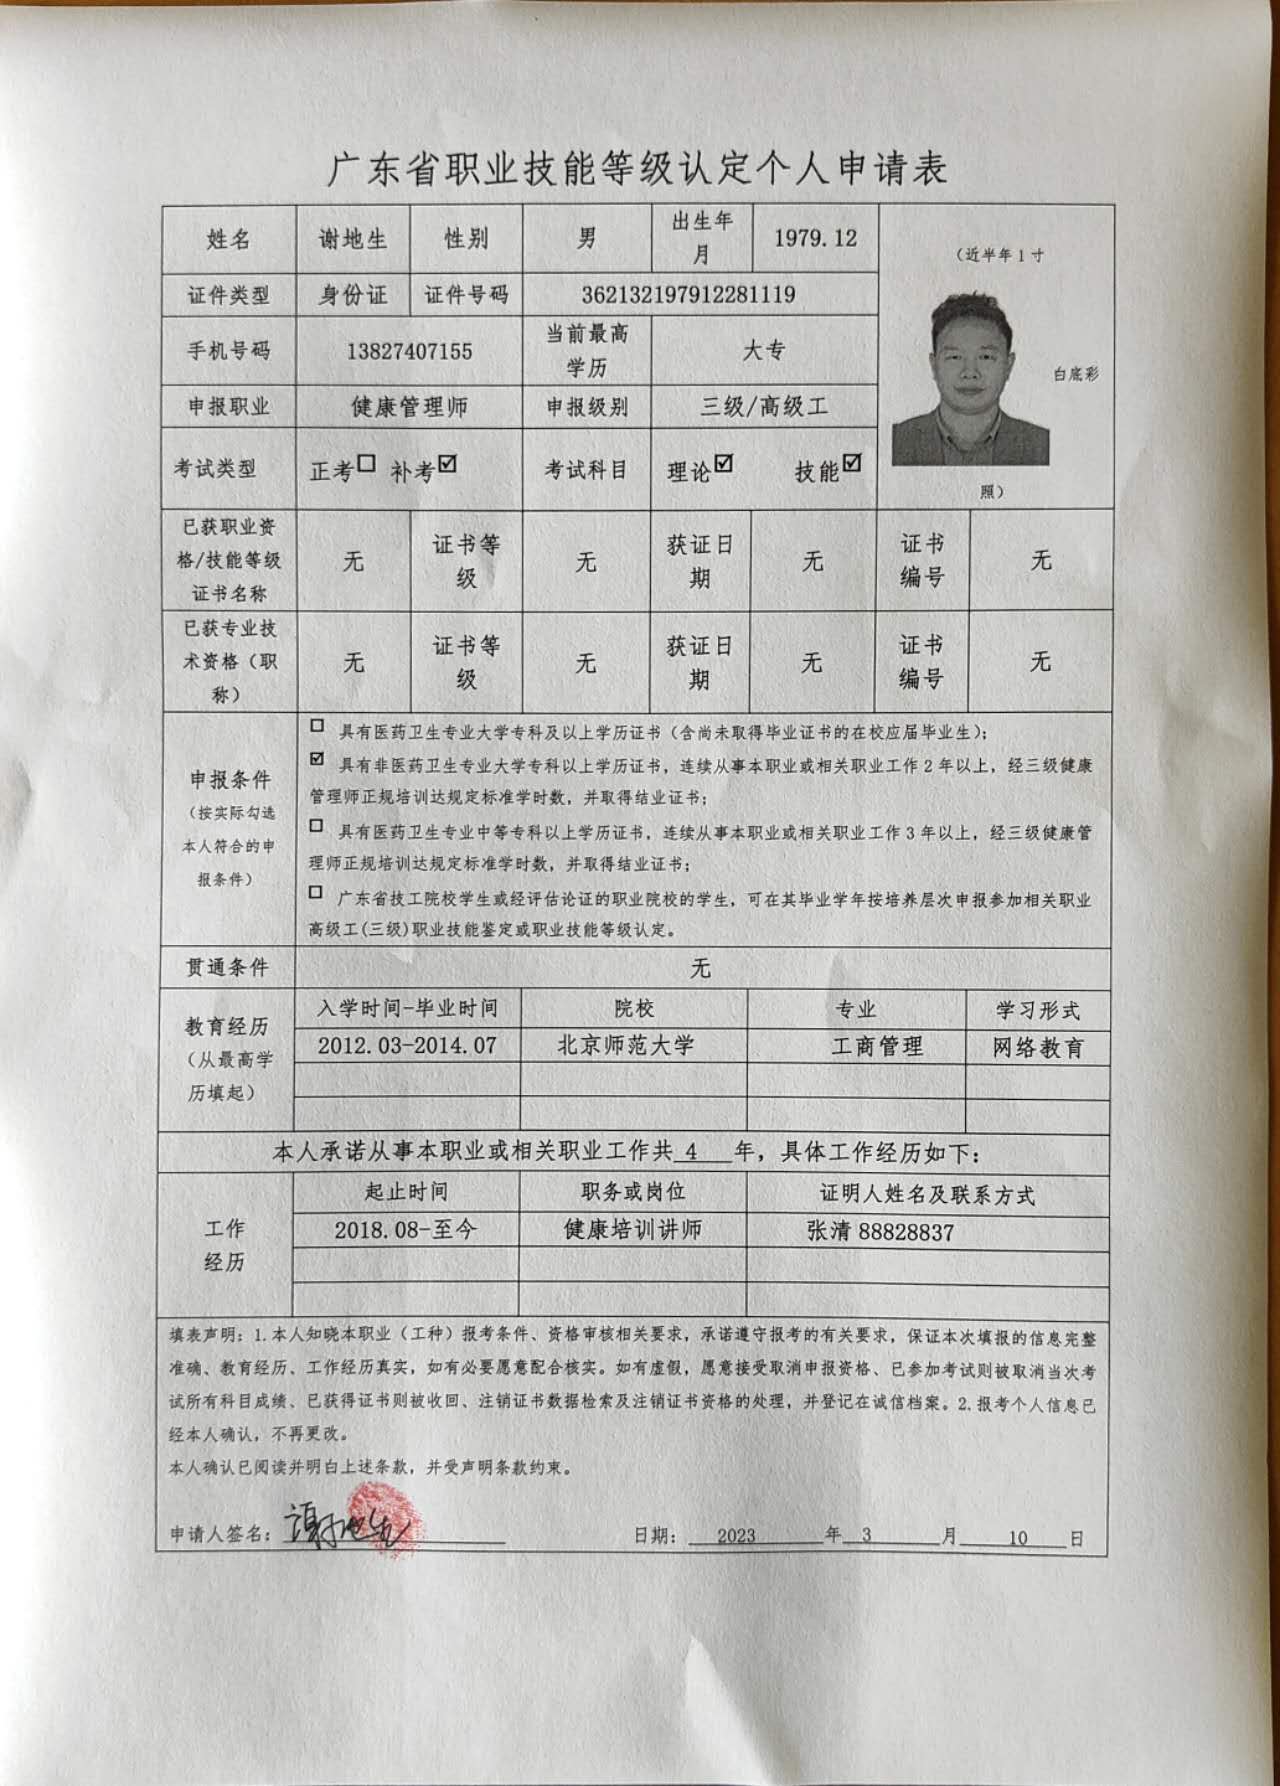 广东省职业技能等级认定个人申请表
姓名 谢地生 性别 男 出生年月 1979.12
(近半年1寸
白底彩
照)
证件类型 身份证 证件号码 362132197912281119
手机号码 13827407155 当前最高学历 大专
申报职业 健康管理师 申报级别 三级/高级工
考试类型 正考☐ 补考☑ 考试科目 理论☑ 技能☑
已获职业资格/技能等级证书名称 无 证书等级 无 获证日期 无 证书编号 无
已获专业技术资格(职称) 无 证书等级 无 获证日期 无 证书编号 无
申报条件
(按实际勾选
本人符合的申
报条件)
☐ 具有医药卫生专业大学专科及以上学历证书(含尚未取得毕业证书的在校应届毕业生);
☑ 具有非医药卫生专业大学专科以上学历证书,连续从事本职业或相关职业工作2年以上,经三级健康
管理师正规培训达规定标准学时数,并取得结业证书;
☐ 具有医药卫生专业中等专科以上学历证书,连续从事本职业或相关职业工作3年以上,经三级健康管
理师正规培训达规定标准学时数,并取得结业证书;
☐ 广东省技工院校学生或经评估论证的职业院校的学生,可在其毕业学年按培养层次申报参加相关职业
高级工(三级)职业技能鉴定或职业技能等级认定。
贯通条件 无
教育经历
(从最高学
历填起)
入学时间-毕业时间 院校 专业 学习形式
2012.03-2014.07 北京师范大学 工商管理 网络教育
本人承诺从事本职业或相关职业工作共 4 年,具体工作经历如下:
工作
经历
起止时间 职务或岗位 证明人姓名及联系方式
2018.08-至今 健康培训讲师 张清 88828837
填表声明:1.本人知晓本职业(工种)报考条件、资格审核相关要求,承诺遵守报考的有关要求,保证本次填报的信息完整
准确、教育经历、工作经历真实,如有必要愿意配合核实。如有虚假,愿意接受取消申报资格、已参加考试则被取消当次考
试所有科目成绩、已获得证书则被收回、注销证书数据检索及注销证书资格的处理,并登记在诚信档案。2.报考个人信息已
经本人确认,不再更改。
本人确认已阅读并明白上述条款,并受声明条款约束。
申请人签名: 谢地生 日期: 2023 年 3 月 10 日